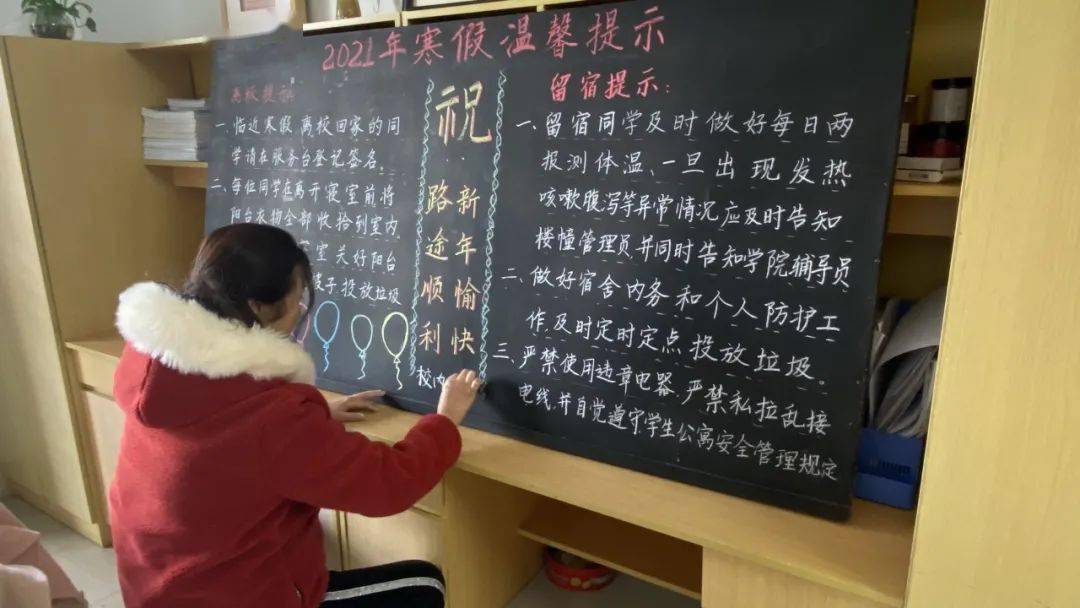 2021年寒假温馨提示
离校提示
一、临近寒假离校回家的同
学请在服务台登记签名。
二、每位同学在离开寝室前将
阳台衣物全部收拾到室内
室关好阳台
投放垃圾
祝
新年愉快
路途顺利
校内
留宿提示:
一、留宿同学及时做好每日两
报测体温、一旦出现发热
咳嗽腹泻等异常情况应及时告知
楼幢管理员并同时告知学院辅导员
二、做好宿舍内务和个人防护工
作,及时定时定点投放垃圾。
三、严禁使用违章电器,严禁私拉乱接
电线,并自觉遵守学生公寓安全管理规定